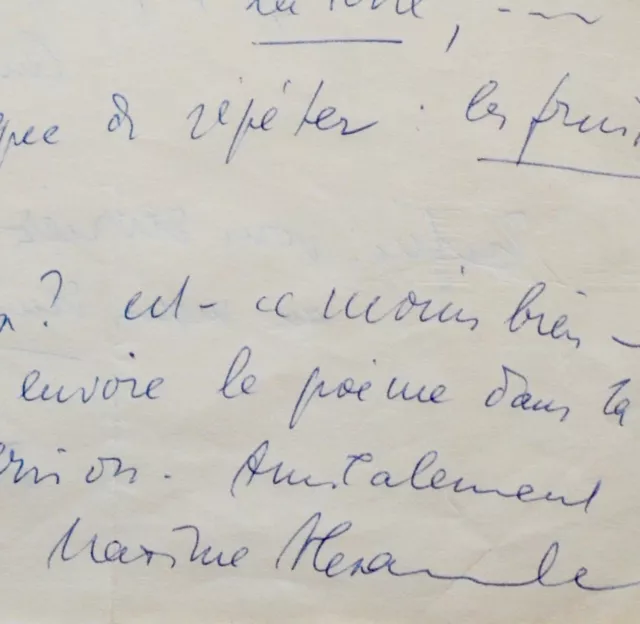 la terre,
de répéter : les fruit
? est-ce moins bien -
envoie le poème dans ta
Amicalement
Maxime Alexandre